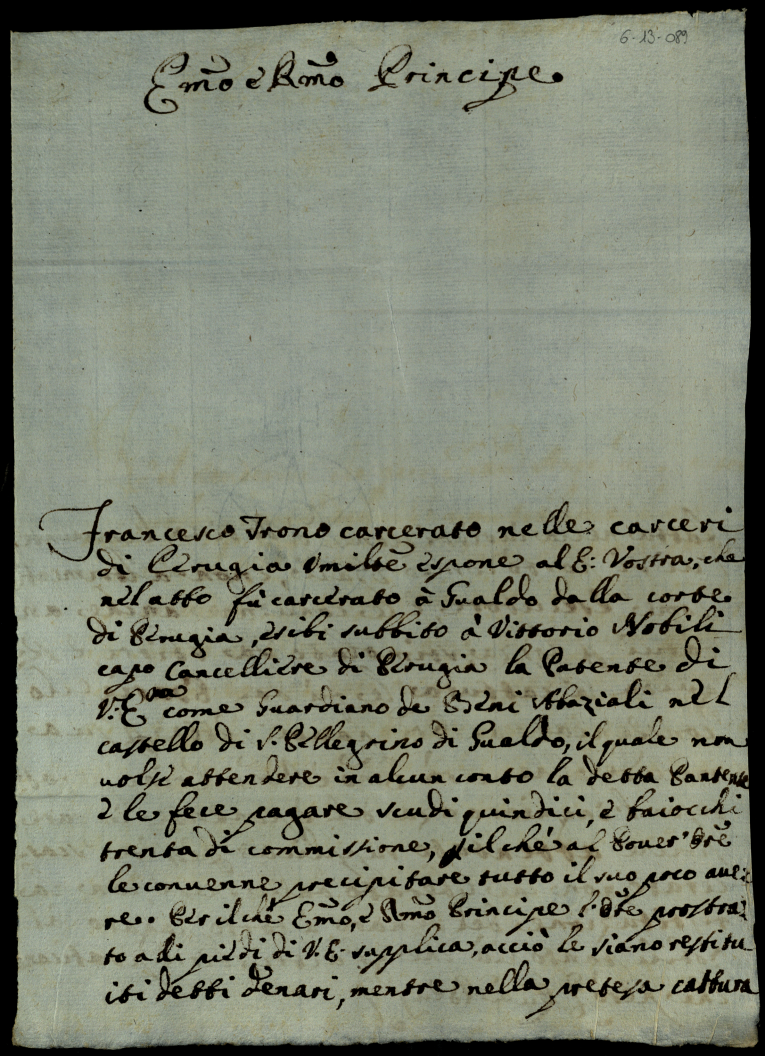 6-13-089
Emo e Rmo Principe
Francesco Trono carcerato nelle carceri
di Perugia Umilte espone al E: Vostra, che
nel atto fù carcerato à Gualdo dalla corte
di Perugia, esibi subbito à Vittorio Nobili
capo Cancelliere di Perugia la Patente di
V: Ema come Guardiano de Beni Abaziali nel
castello di S. Pellegrino di Gualdo, il quale non
volse attendere in alcun conto la detta Pantente
e le fece pagare scudi quindici, e baiocchi
trenta di commissione, il ché al Pover' Ore
le convenne precipitare tutto il suo poco ave=
re. Per il ché Emo, e Rmo Principe l'Ore prostra=
to a di piedi di V. E. supplica, acciò le siano restitu
iti detti denari, mentre nella pretesa cattura